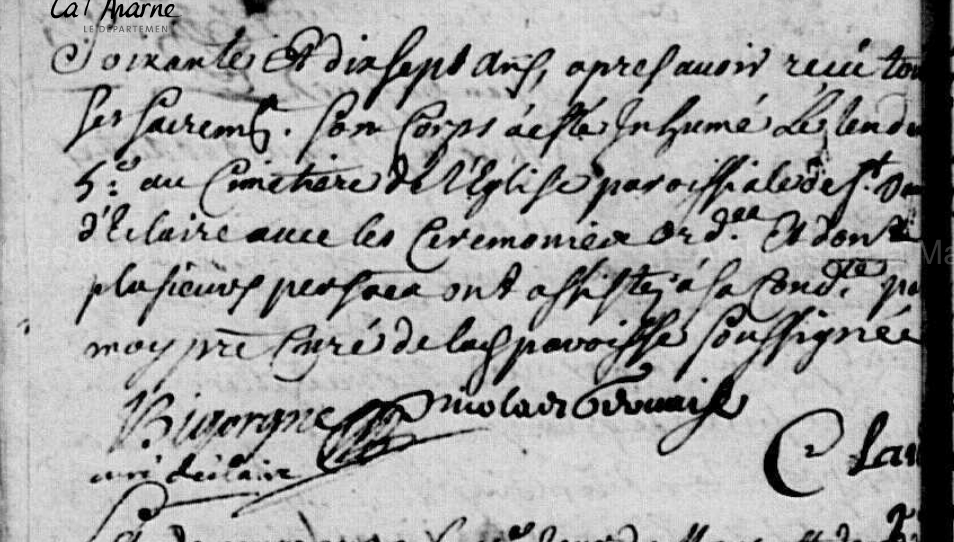 La Marne
LE DÉPARTEMENT
Soixante Et dix sept ans, apres avoir recu tou
ses sacremts. Son Corps a esté Inhumé Le lend
5e. au Cimetiere de l'Eglise paroissiale de St.
d'Eclaire avec les Ceremonies Ord.ree Et dont
plusieurs persones ont assistez à sa Cond.te pa
moy pre Curé de lad paroisse soussignée
Bigorgne Nicolas Gervaise
curé declaire
C Lau